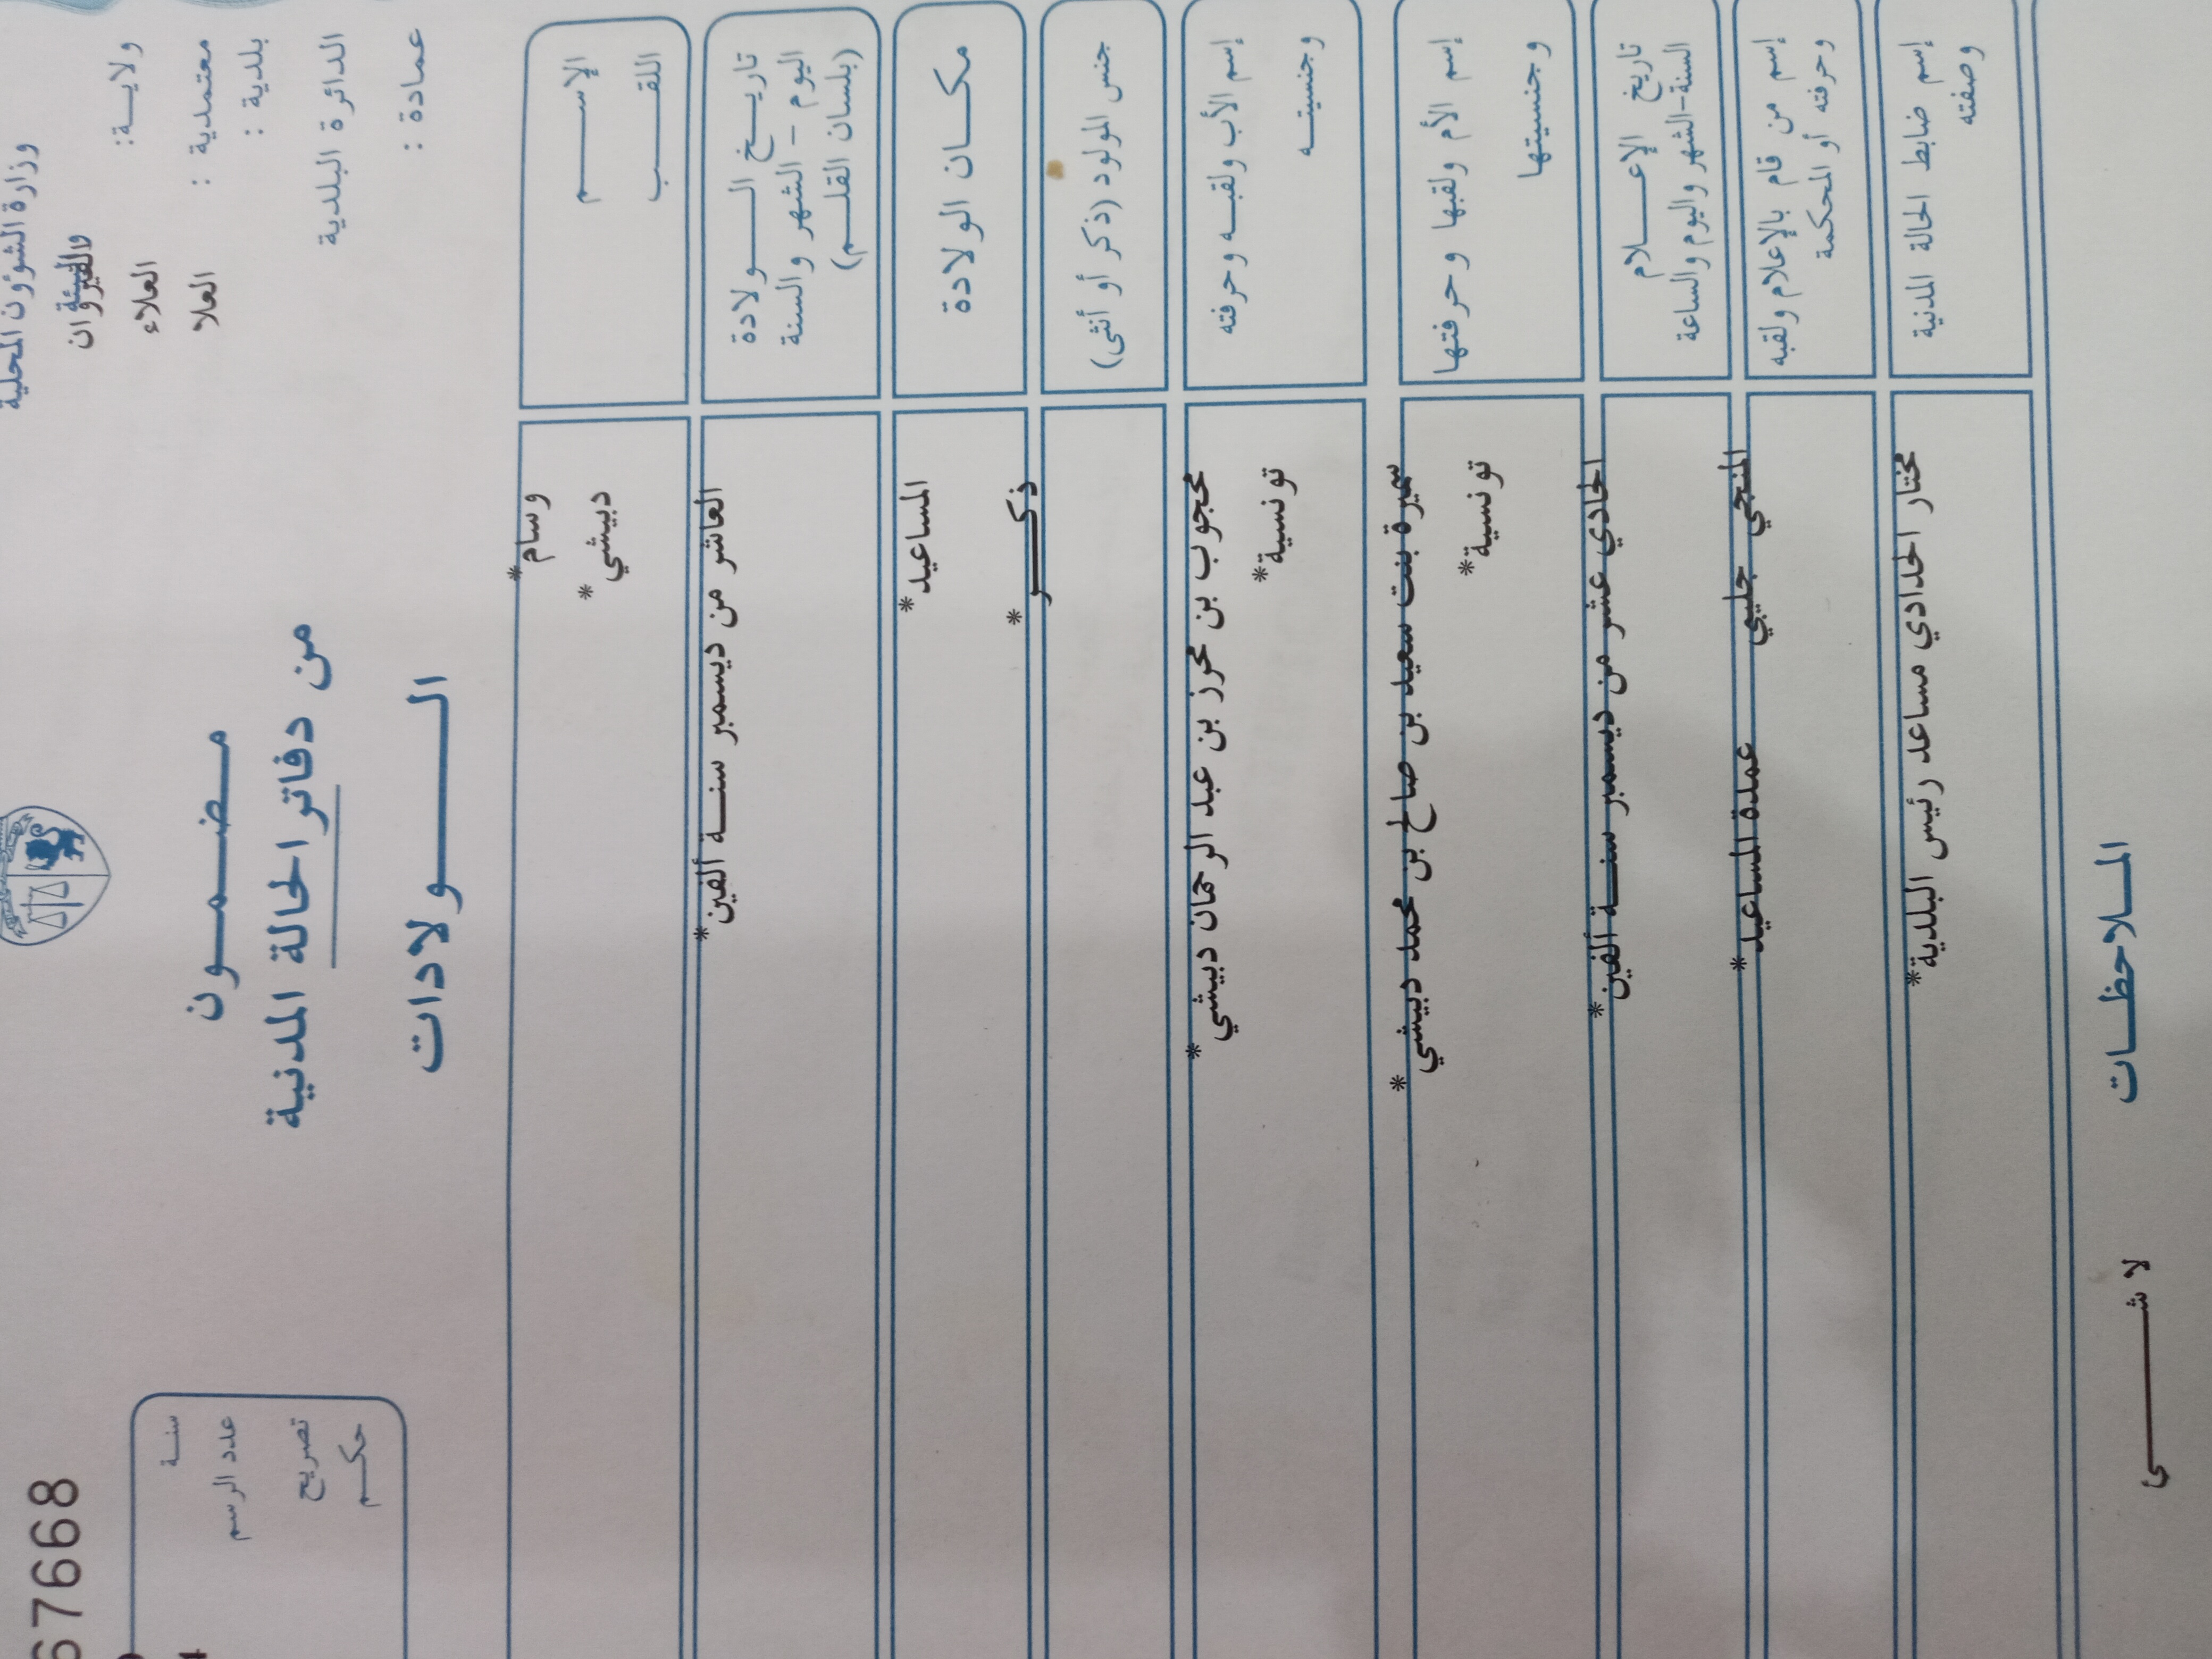 وزارة الشؤون المحلية
والبيئة
ولايـــة: القيروان
معتمدية : العلاء
بلدية : العلا
الدائرة البلدية
عمادة :
67668
سنـــة
عدد الرسم
تصريح
حكـــم
مـــضـــمـــون
من دفاتر الحالة المدنية
الـــــولادات
الإســـــم
وسام*
اللقـــــب
دبيشي*
تاريـــخ الـــــولادة
اليوم – الشهر والسنة
(بلسان القلـــم)
العاشر من ديسمبر سنـــة ألفين*
مكـــان الولادة
المساعيد*
جنس المولود (ذكر أو أنثى)
ذكـــــر*
إسم الأب ولقبـــه وحرفته
محجوب بن محرز بن عبد الرحمان دبيشي*
وجنسيتـــه
تونسية*
إسم الأم ولقبها وحرفتها
سميرة بنت سعيد بن صالح بن محمد دبيشي*
وجنسيتها
تونسية*
تاريخ الإعـــــلام
السنة-الشهر واليوم والساعة
الحادي عشر من ديسمبر سنـــة ألفين*
إسم من قام بالإعلام ولقبه
وحرفته أو المحكمة
المنجي جليبي عمدة المساعيد*
إسم ضابط الحالة المدنية
وصفته
مختار الحدادي مساعد رئيس البلدية*
المـــلاحظـــات
لا شـــــــيء